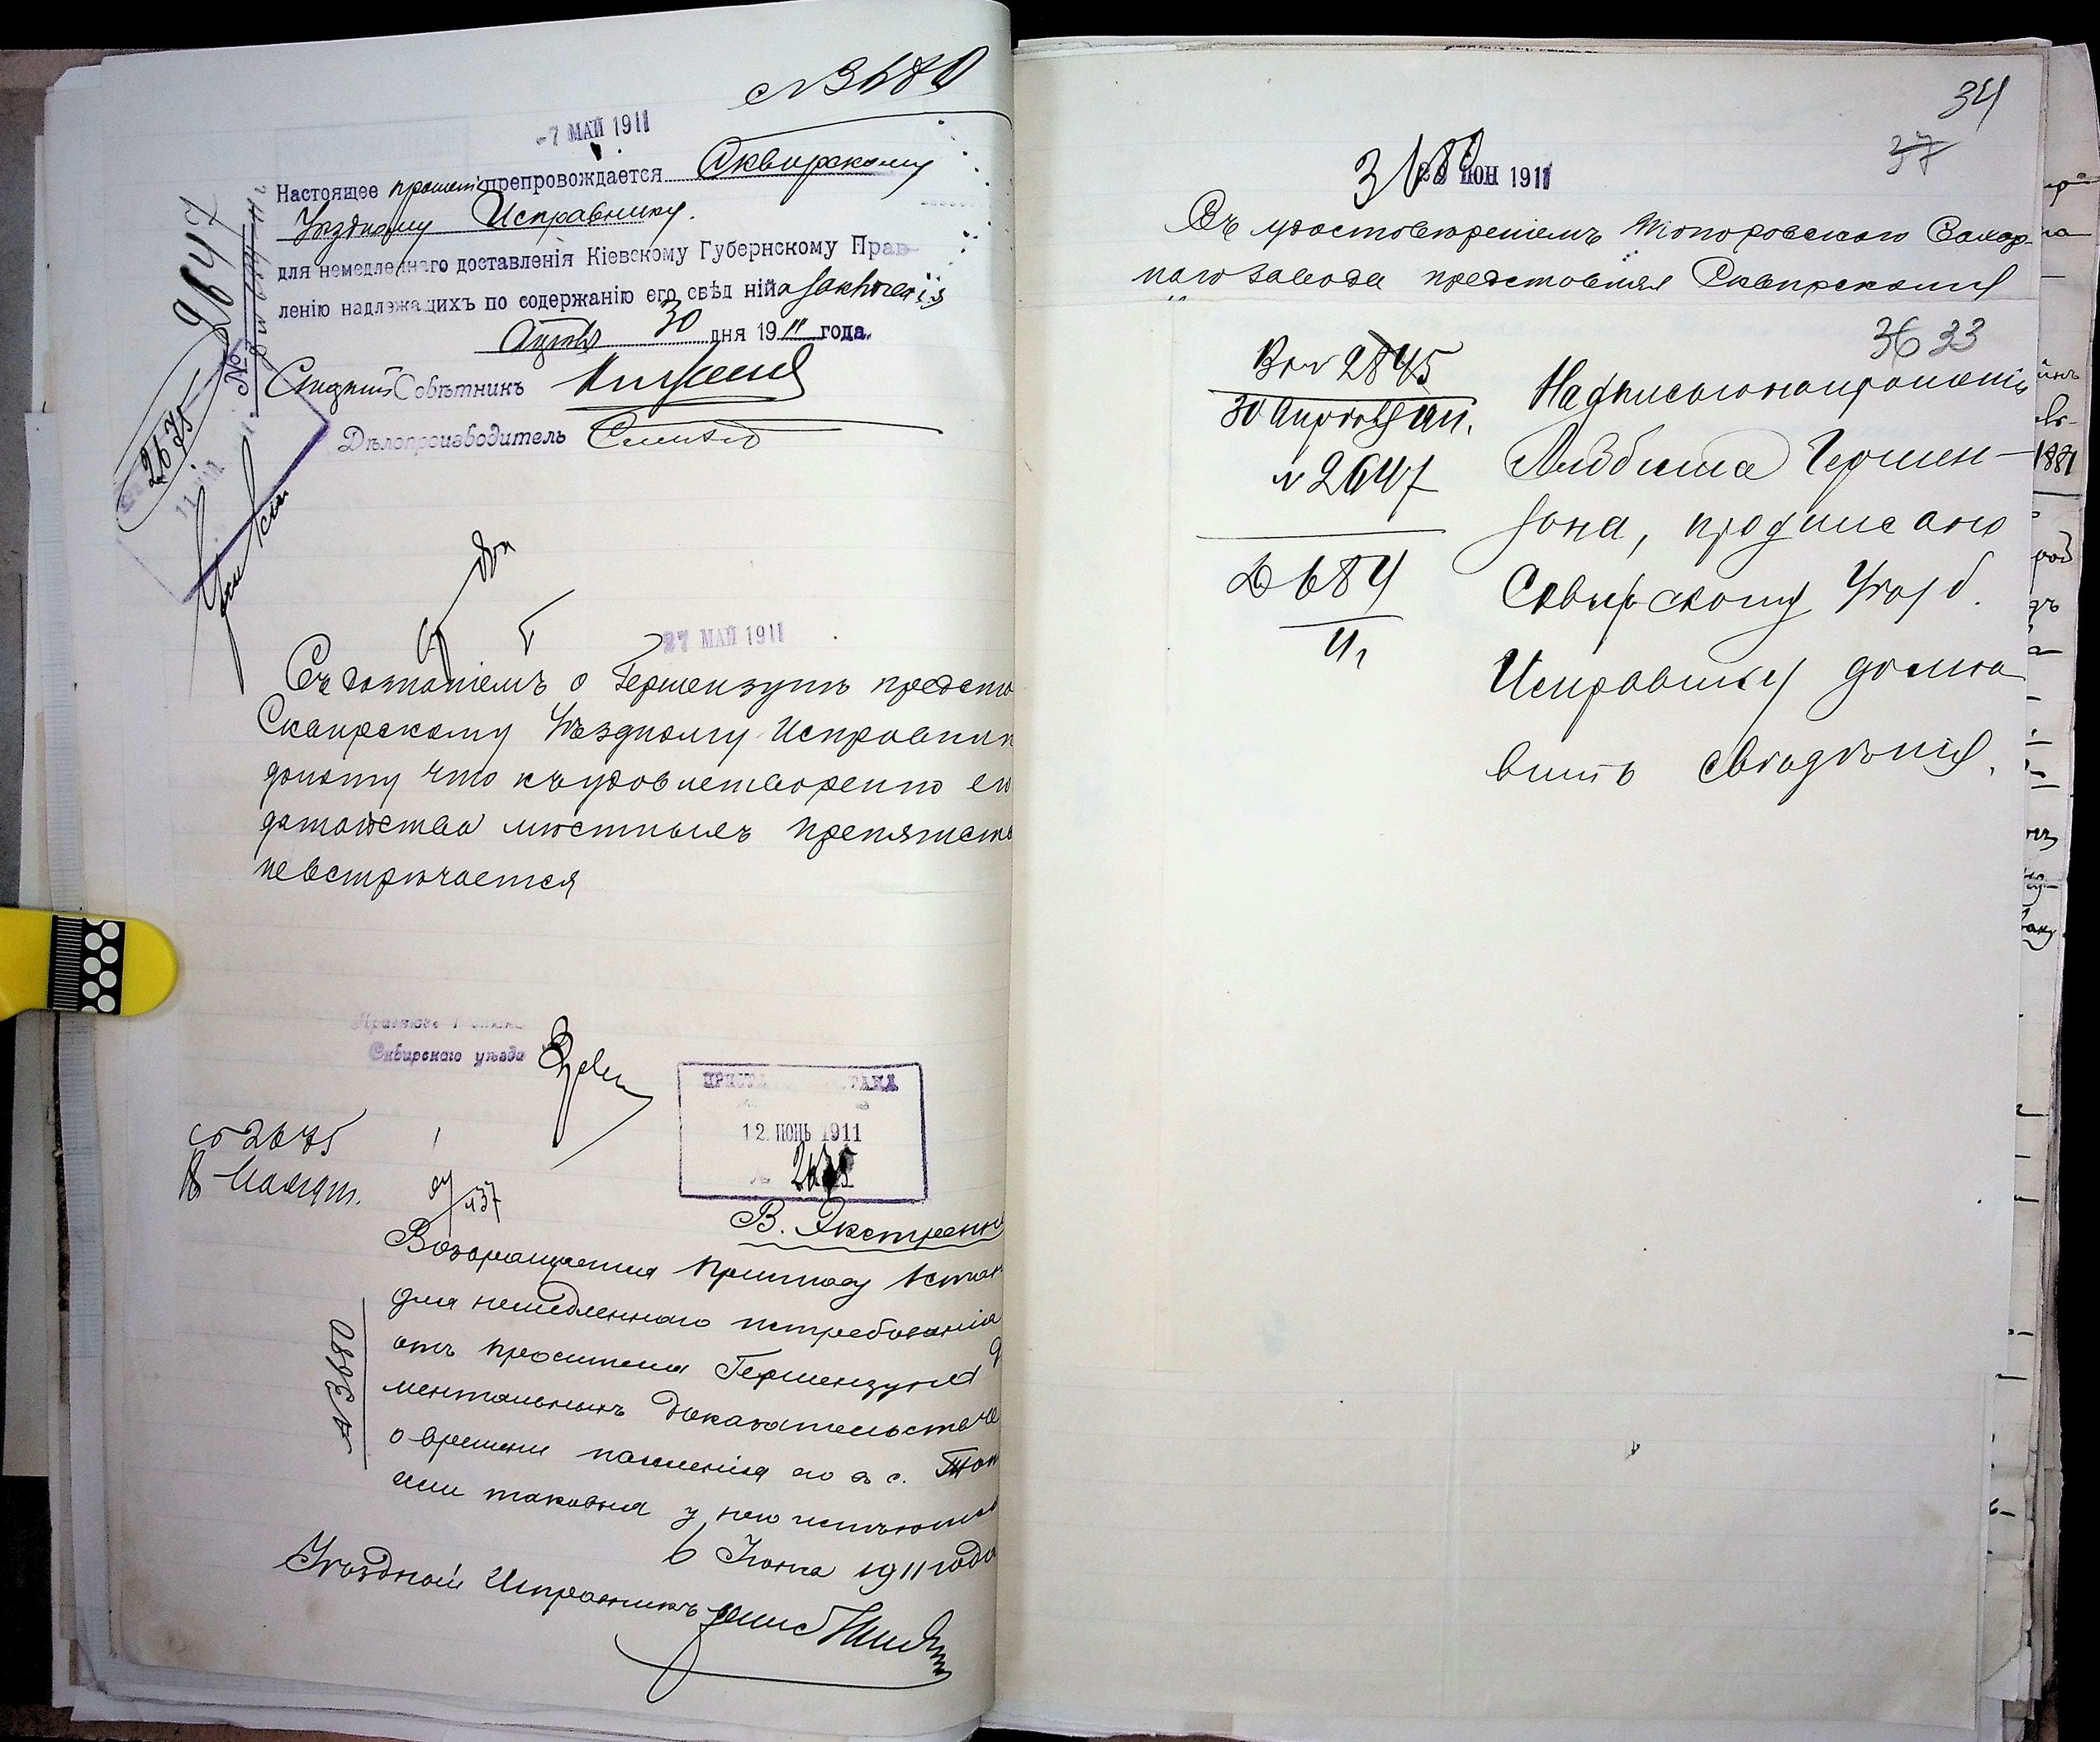 №3680
-7 МАЙ 1911
Настоящее прошеніе препровождается Сквирскому
Уѣздному Исправнику.
для немедленнаго доставленія Кіевскому Губернскому Прав-
ленію надлежащихъ по содержанію его свѣдѣній и заключенія
Апрѣля 30 дня 1911 года.
Совѣтникъ
Дѣлопроизводитель
№ 2647
2675
27 МАЙ 1911
Съ дознаніемъ о Гершензунѣ предста
Сквирскому Уѣздному Исправник
доношу что къ удовлетворенію его
датайства мѣстныхъ препятств
не встрѣчается
Сквирскаго уѣзда
12. ІЮНЬ 1911
№ 2675
№ 2675
В. Экстренно
Возвращается Приставу 1 стан
для немедленнаго истребованія
отъ просителя Гершензуна д
ментальныхъ доказательствъ
о времени поселенія его въ с. Топ
если таковыя у него имѣются
6 Іюня 1911 года
№3680
Уѣздный Исправникъ
34
37
28 ІЮН 1911
Съ удостовѣреніемъ Топоровскаго Сахар-
наго завода представляя Сквирскому
36 33
Вх № 2845
30 Апрѣля 911.
№ 2647
Надписью на прошеніи
Гершен-
зона, предписано
Сквирскому Уѣзд.
Исправнику доста
вить свѣдѣнія.
684